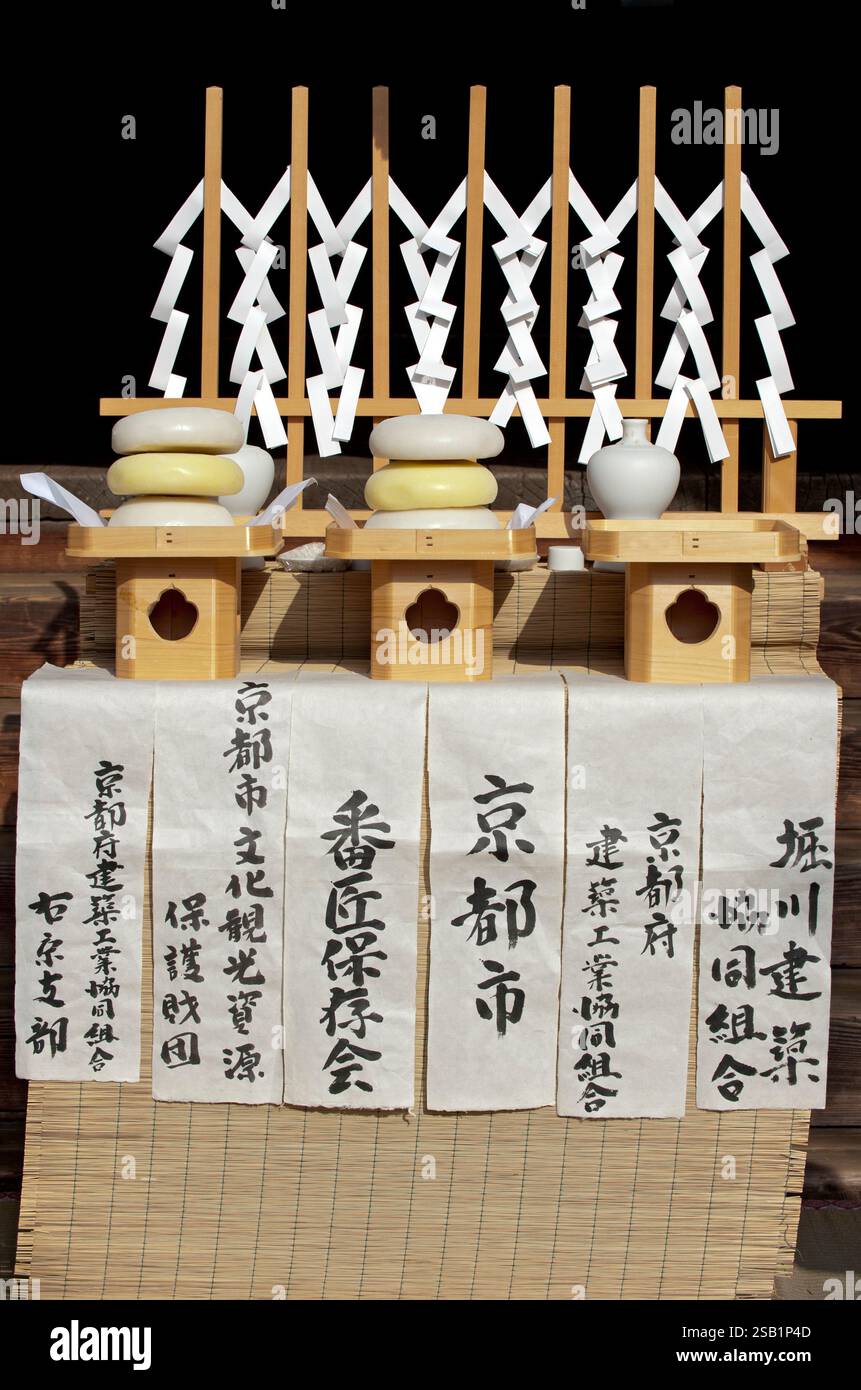 堀川建築
協同組合
京都府
建築工業協同組合
京都市
番匠保存会
京都市文化観光資源
保護財団
京都府建築工業協同組合
右京支部
alamy
a
a
a
a
a
a
alamy
Image ID: 2SB1P4D
www.alamy.com